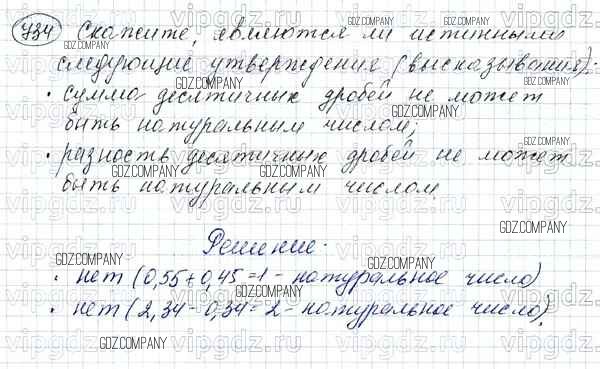 734 Скажите, являются ли истинными
следующие утверждения (высказывания):
• сумма десятичных дробей не может
быть натуральным числом;
• разность десятичных дробей не может
быть натуральным числом.
Решение.
• нет (0,55 + 0,45 = 1 - натуральное число)
• нет (2,34 - 0,34 = 2 - натуральное число).